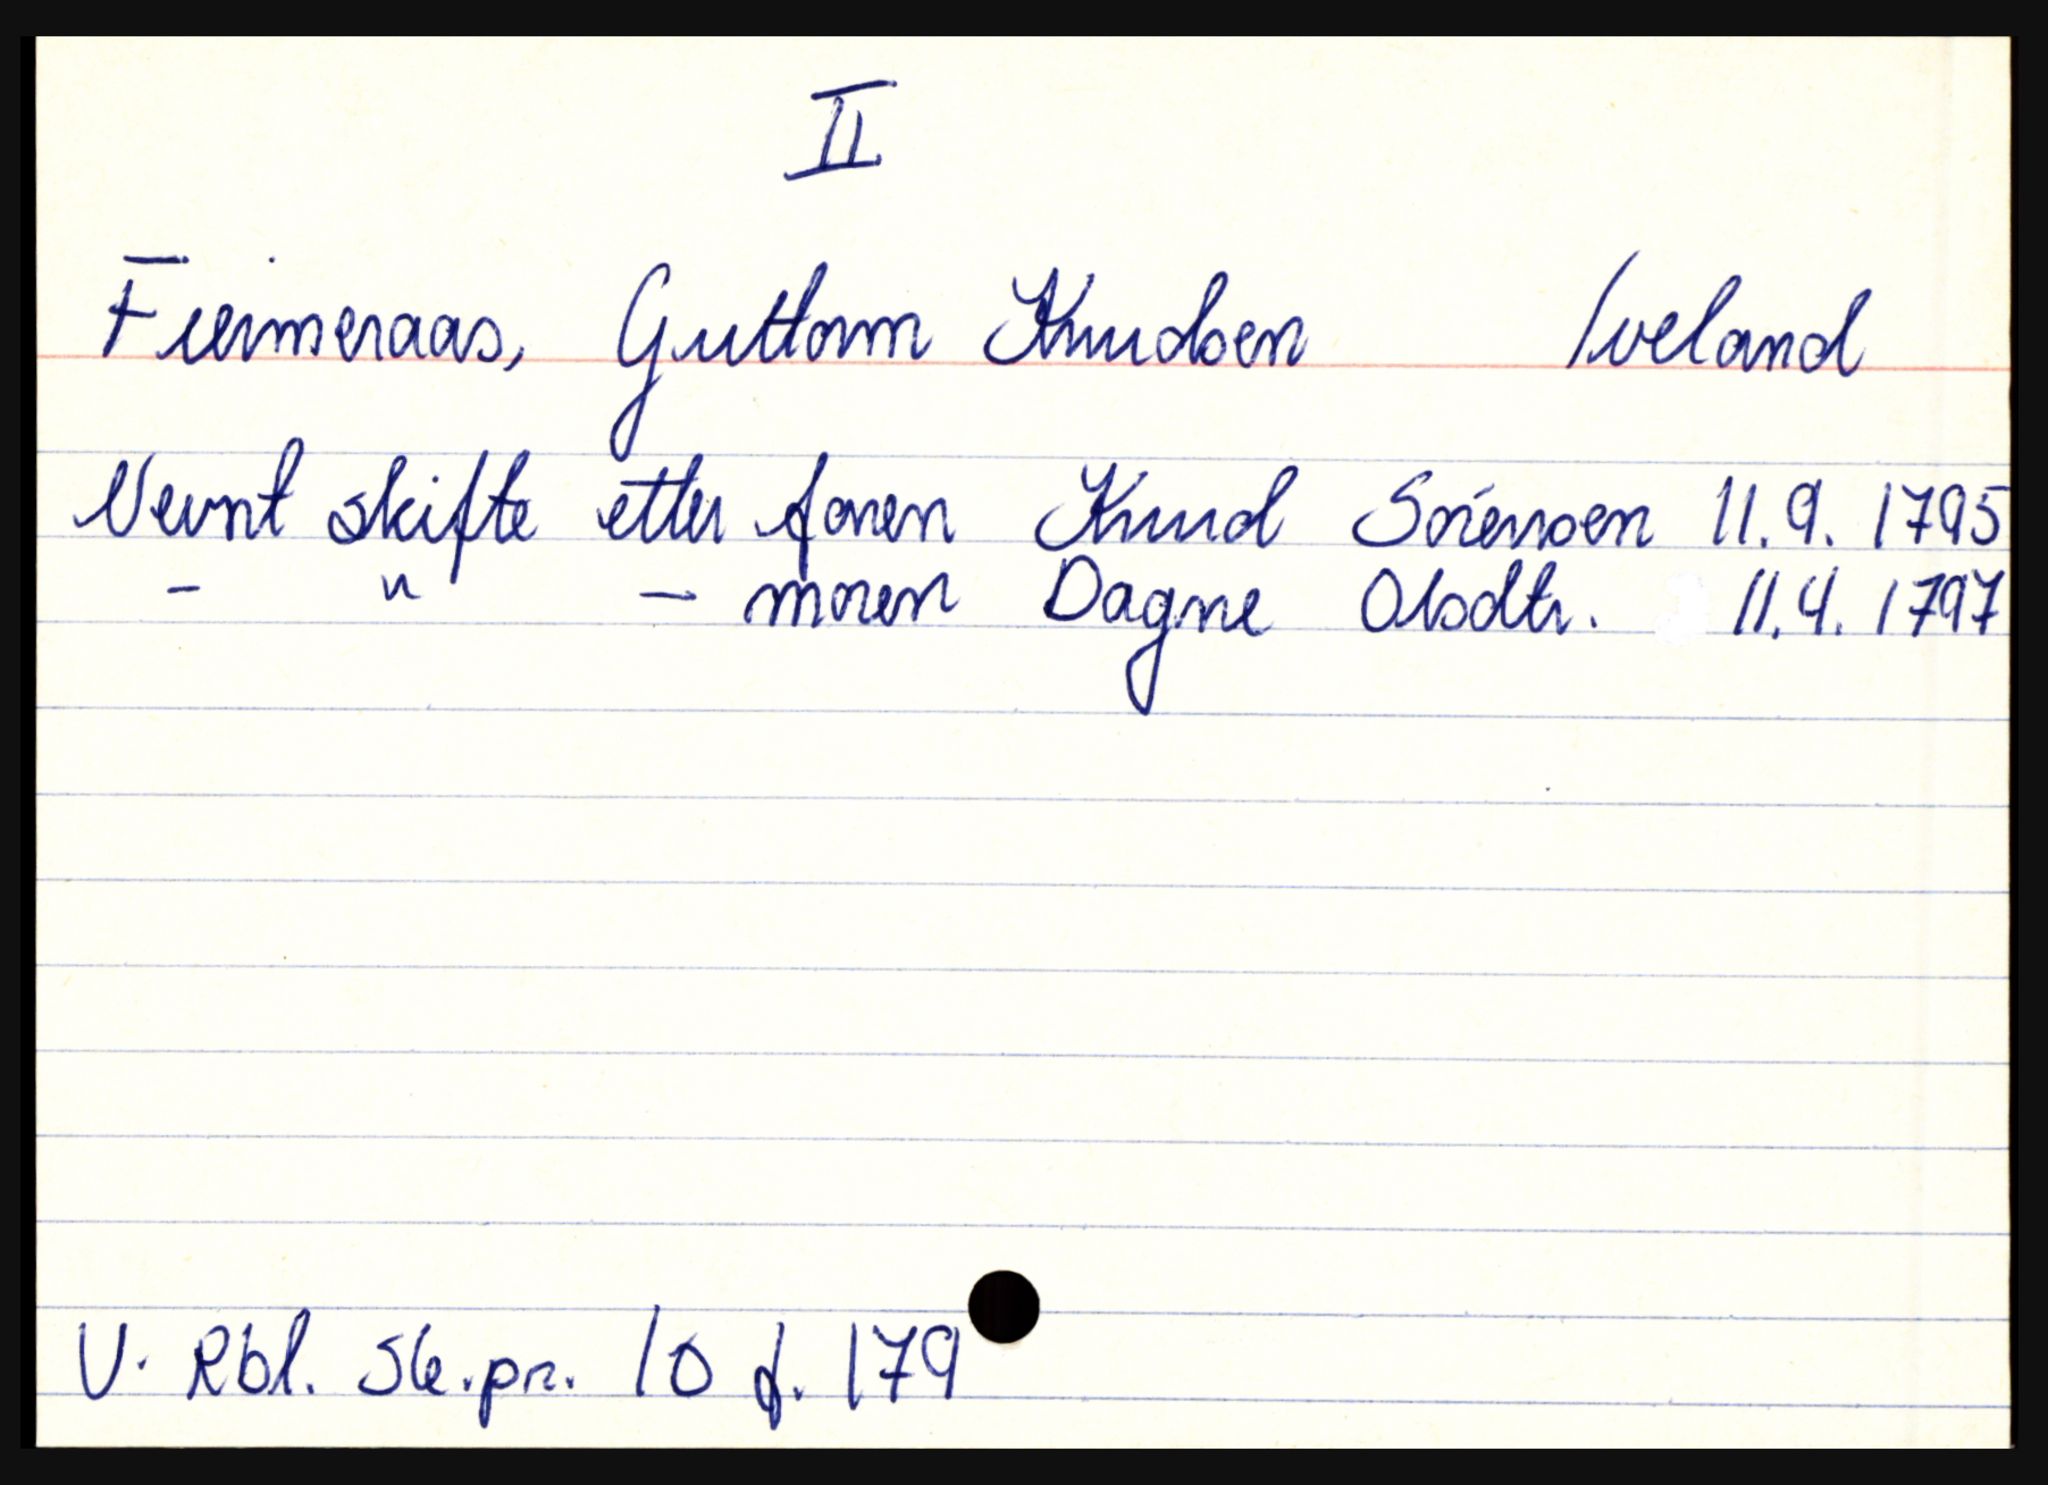 II
Fiermeraas, Guttorm Knudsen Iveland
Nevnt skifte etter faren Knud Sørensen 11.9. 1795
- " - moren Dagne Olsdtr. 11.4. 1797
V. Rbl. Sk.pr. 10 f. 179